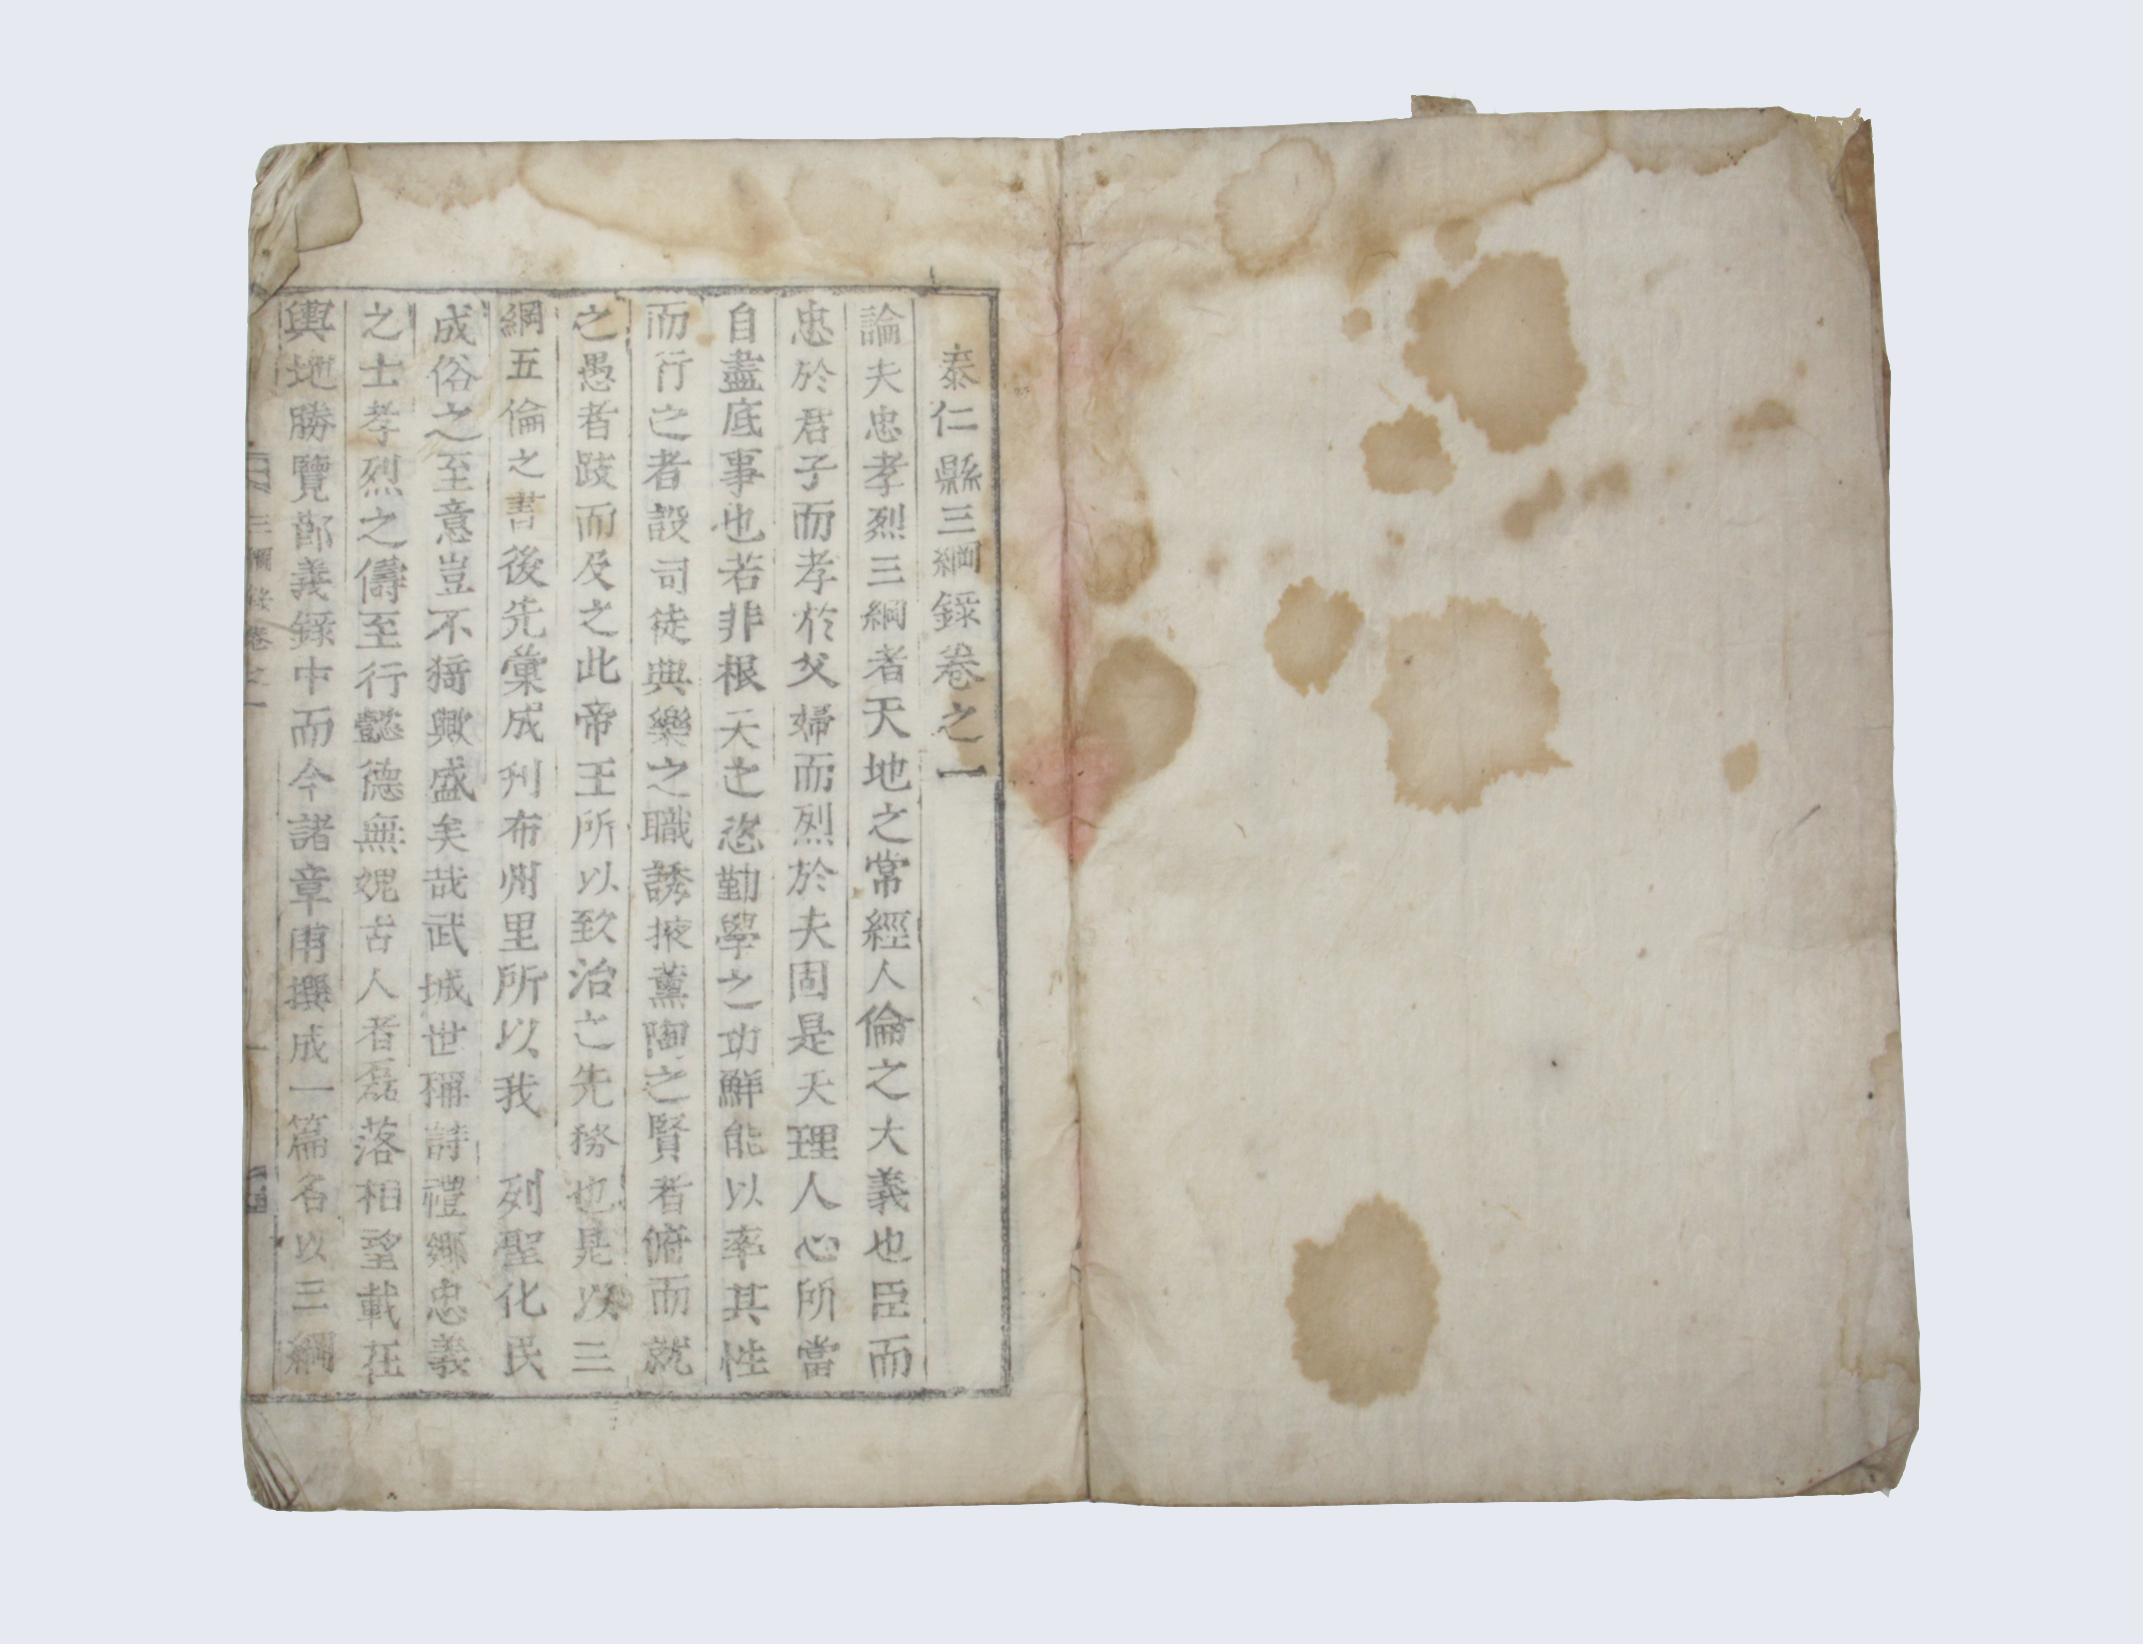 泰仁縣三綱錄卷之一
論夫忠孝烈三綱者天地之常經人倫之大義也臣而
忠於君子而孝於父婦而烈於夫固是天理人心所當
自盡底事也若非根天之姿勤學之功鮮能以率其性
而行之者設司徒典樂之職誘掖薰陶之賢者俯而就
之愚者跂而及之此帝王所以致治之先務也是以三
綱五倫之書後先彙成刊布州里所以我 列聖化民
成俗之至意豈不猗歟盛矣哉武城世稱詩禮鄉忠義
之士孝烈之儔至行懿德無媿古人者磊落相望載在
輿地勝覽義錄中而今諸章甫撰成一篇名以三綱
三綱錄卷之一